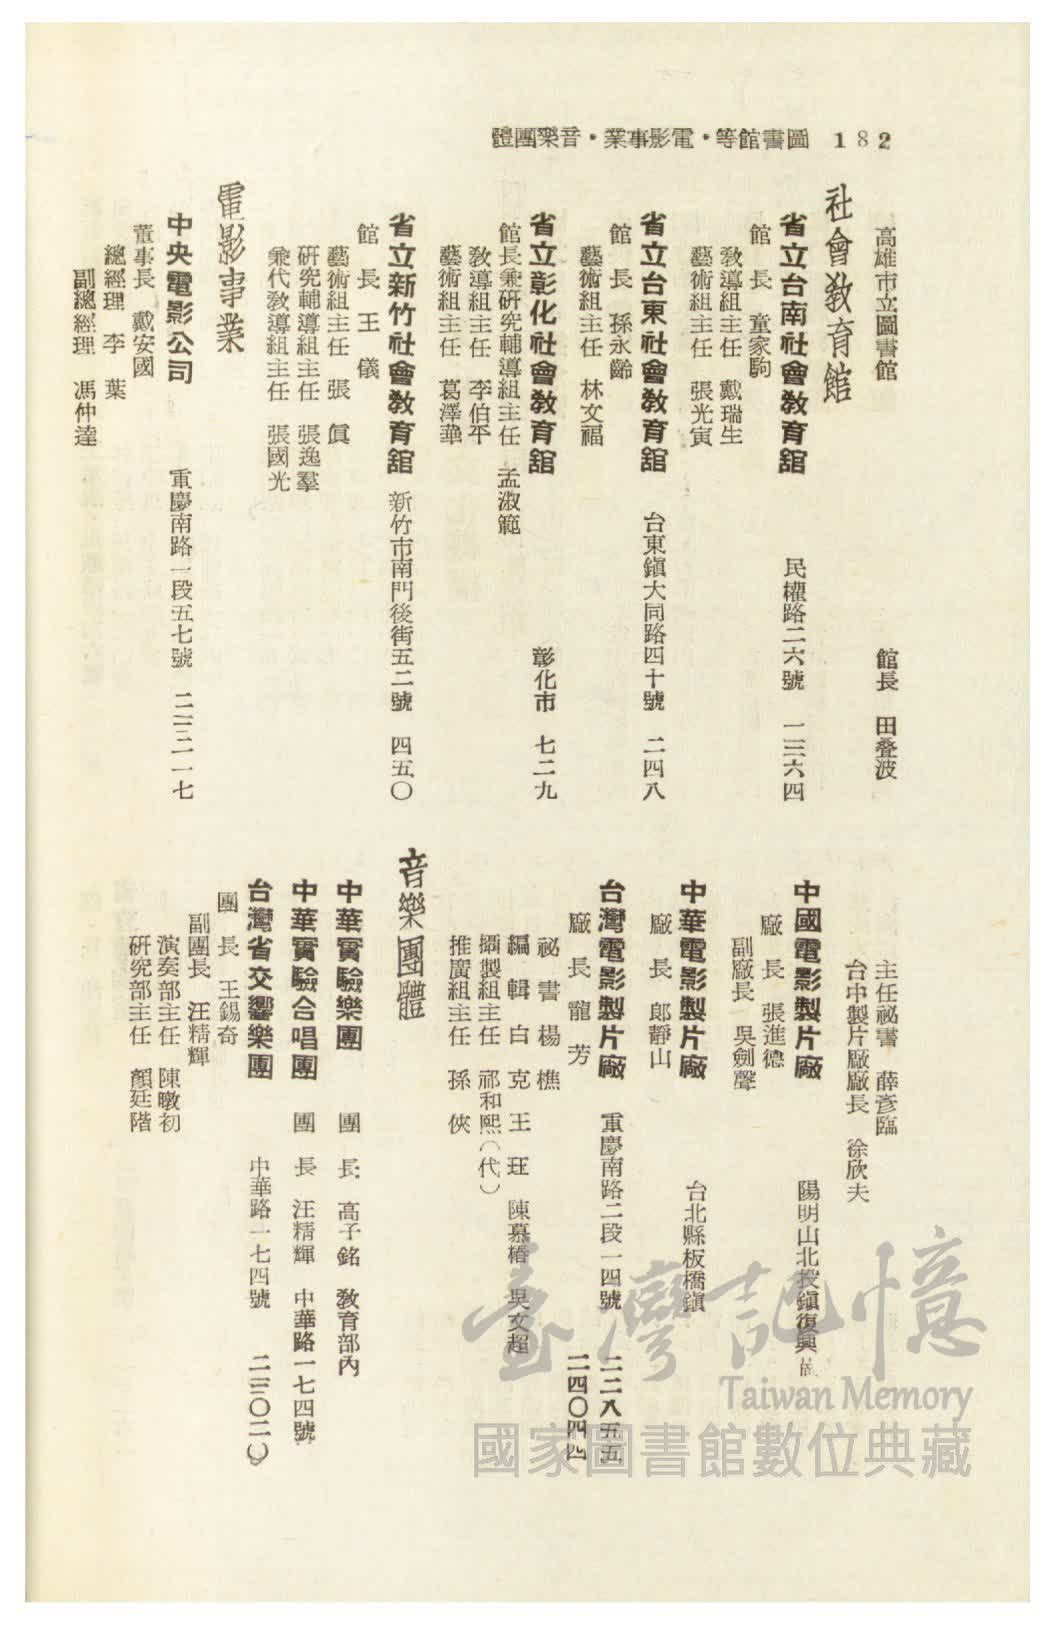 182 圖書館等・電影事業・音樂團體
高雄市立圖書館 館長 田叠波
社會教育館
省立台南社會教育舘 民權路二六號 一三六四
館長 童家駒
教導組主任 戴瑞生
藝術組主任 張光寅
省立台東社會教育舘 台東鎮大同路四十號 二四八
館長 孫永齡
藝術組主任 林文福
省立彰化社會教育舘 彰化市 七二九
館長兼研究輔導組主任 孟淑範
教導組主任 李伯平
藝術組主任 葛澤華
省立新竹社會教育舘 新竹市南門後街五二號 四五〇
館長 王儀
藝術組主任 張眞
研究輔導組主任 張逸羣
兼代教導組主任 張國光
電影事業
中央電影公司 重慶南路一段五七號 二三二一七
董事長 戴安國
總經理 李葉
副總經理 馮仲達
主任祕書 薛彥臨
台中製片廠廠長 徐欣夫
中國電影製片廠 陽明山北投鎮復興
廠長 張進德
副廠長 吳劍聲
中華電影製片廠 台北縣板橋鎮
廠長 郎靜山
台灣電影製片廠 重慶南路二段一四號 二二八五五
廠長 龍芳 二四〇四四
祕書 楊樵
編輯 白克 王玨 陳慕椿 吳文超
攝製組主任 祁和熙(代)
推廣組主任 孫俠
音樂團體
中華實驗樂團 團長 高子銘 教育部內
中華實驗合唱團 團長 汪精輝 中華路一七四號
台灣省交響樂團 中華路一七四號 二三〇二〇
團長 王錫奇
副團長 汪精輝
演奏部主任 陳暾初
研究部主任 顏廷階
臺灣記憶
Taiwan Memory
國家圖書館數位典藏